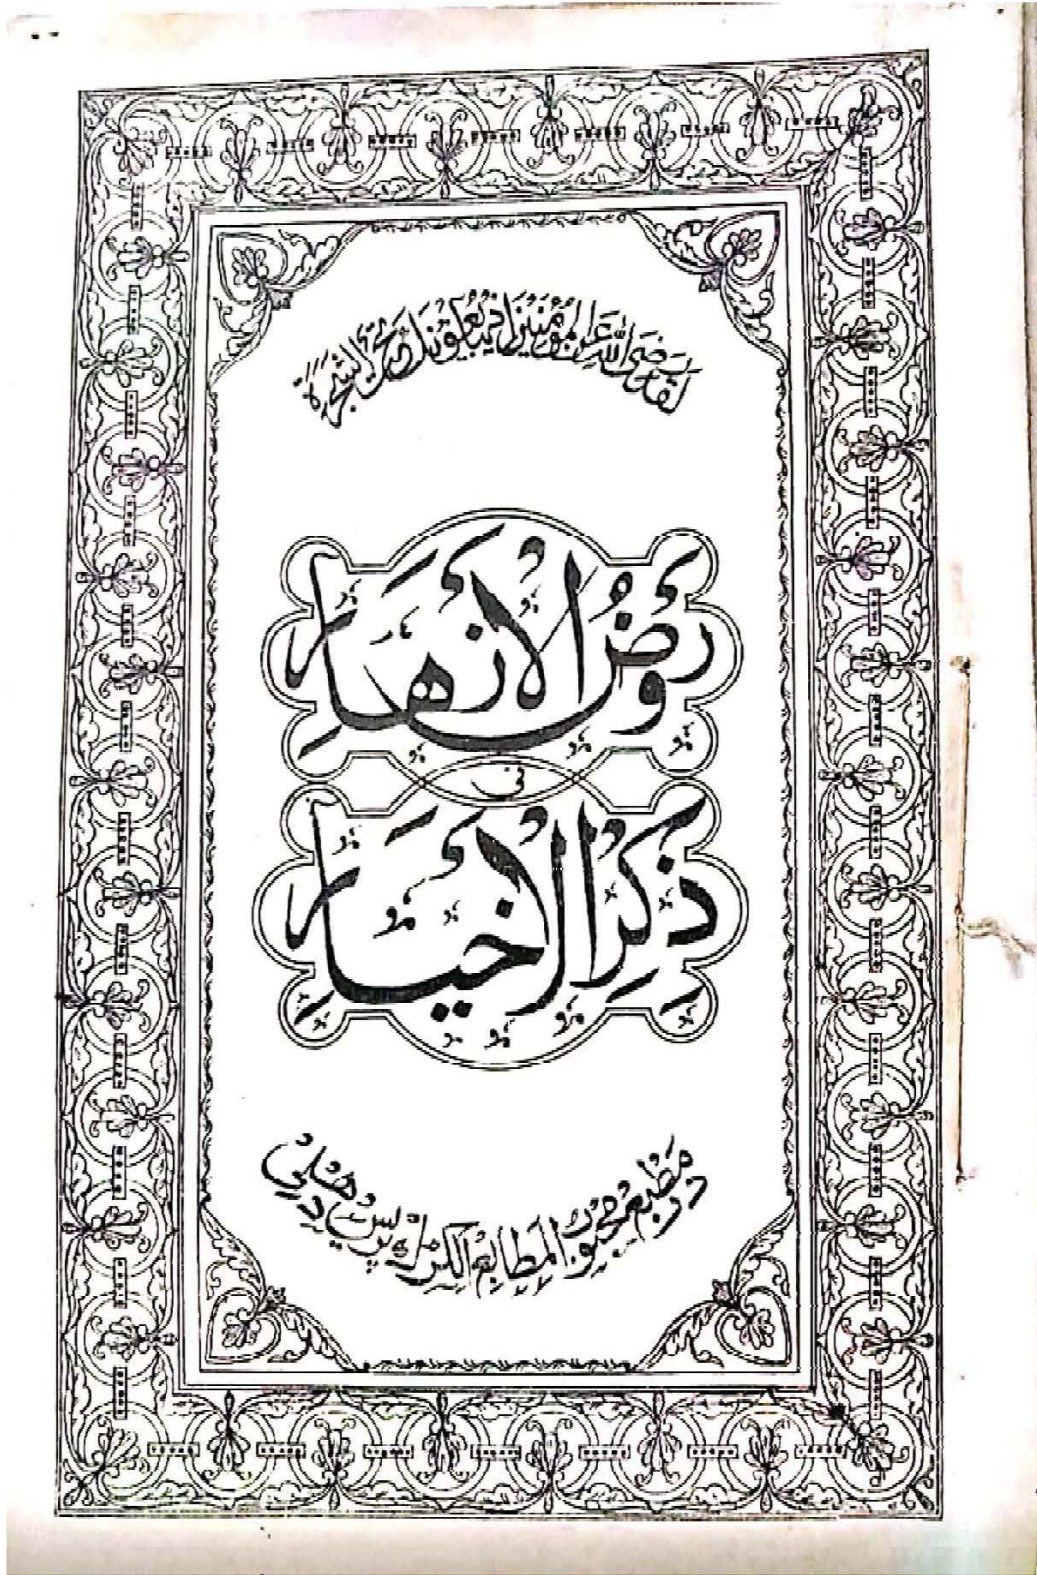 لَقَدْ رَضِيَ اللّٰهُ عَنِ الْمُؤْمِنِيْنَ اِذْ يُبَايِعُوْنَكَ تَحْتَ الشَّجَرَةِ
رَوْضُ الْاَزْهَارِ
فی
ذِكْرِ الْاَخْيَارِ
در مطبع محبوب المطابع الکٹرک پریس دهلی